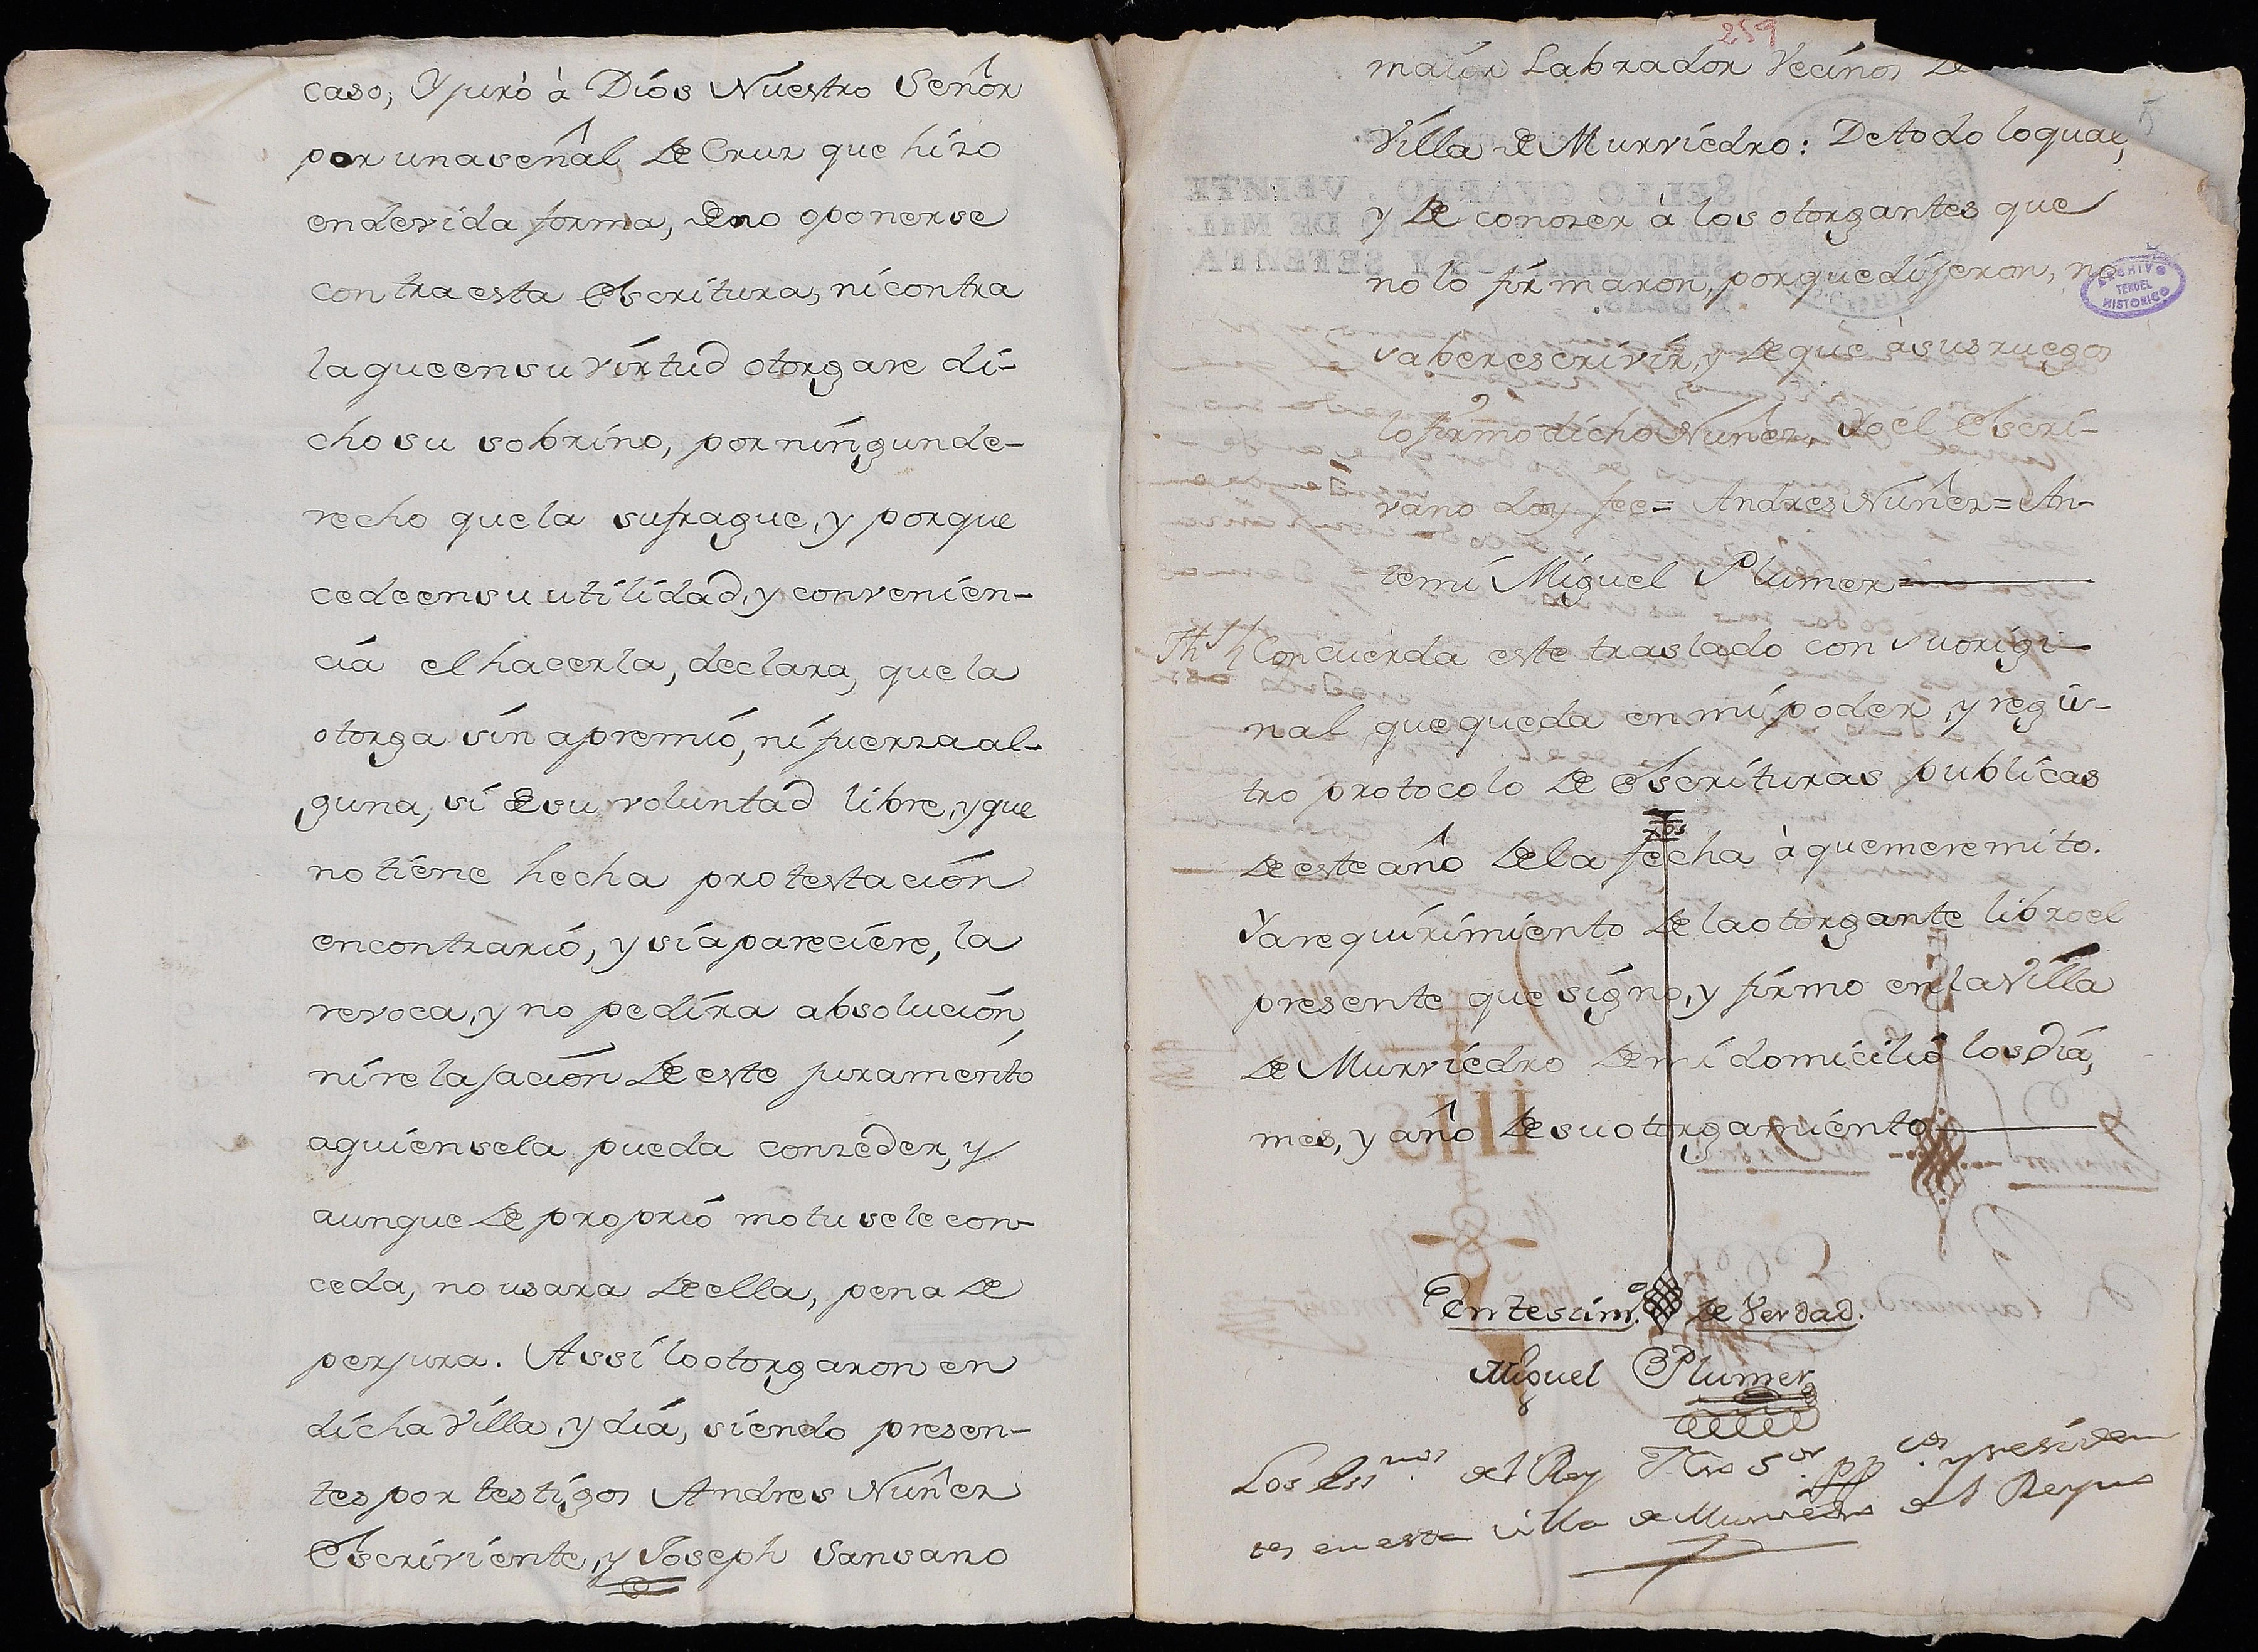 caso; Y juró à Dios Nuestro Señor
por una señal de Cruz que hizo
en devida forma, de no oponerse
contra esta Escritura, ni contra
la que en su virtud otorgare di-
cho su sobrino, por ningun de-
recho que la sufrague, y porque
cede en su utilidad, y convenien-
cia el hacerla, declara, que la
otorga sin apremio, ni fuerza al-
guna, si de su voluntad libre, y que
no tiene hecha protestacion
en contrario, y si apareciere, la
revoca, y no pedira absolucion,
ni relajacion de este juramento
a quien se la pueda conzeder, y
aunque de proprio motu se le con-
ceda, no usara de ella, pena de
perjura. Assi lo otorgaron en
dicha Villa, y dia, siendo presen-
tes por testigos Andres Nuñez
Escriviente, y Joseph Sansano
259
maior Labrador Vecinos de
Villa de Murviedro: De todo lo qual,
y de conozer à los otorgantes que
no lo firmaron, porque dijeron, no
saber escrivir, y de que à sus ruegos
lo firmó dicho Nuñez, Yo el Escri-
vano doy fee= Andres Nuñez= An-
temi Miguel Plumer=
Concuerda este traslado con su origi-
nal que queda en mi poder, y regis-
tro protocolo de Escrituras publicas
de este año de la fecha à que me remito.
Y a requirimiento de la otorgante libro el
presente que signo, y firmo en la Villa
de Murviedro de mi domicilio los dia,
mes, y año de su otorgamiento
En testim.o de Verdad.
Miguel Plumer
Los Ess.nos del Rey Nro S.or pp.cos y residen
tes en esta villa de Murviedro del Reyno
ARCHIVO
TERUEL
HISTORICO
SELLO QVARTO, VEINTE
MARAVEDIS, AÑO DE MIL
SETECIENTOS Y SETENTA
Y SEIS.